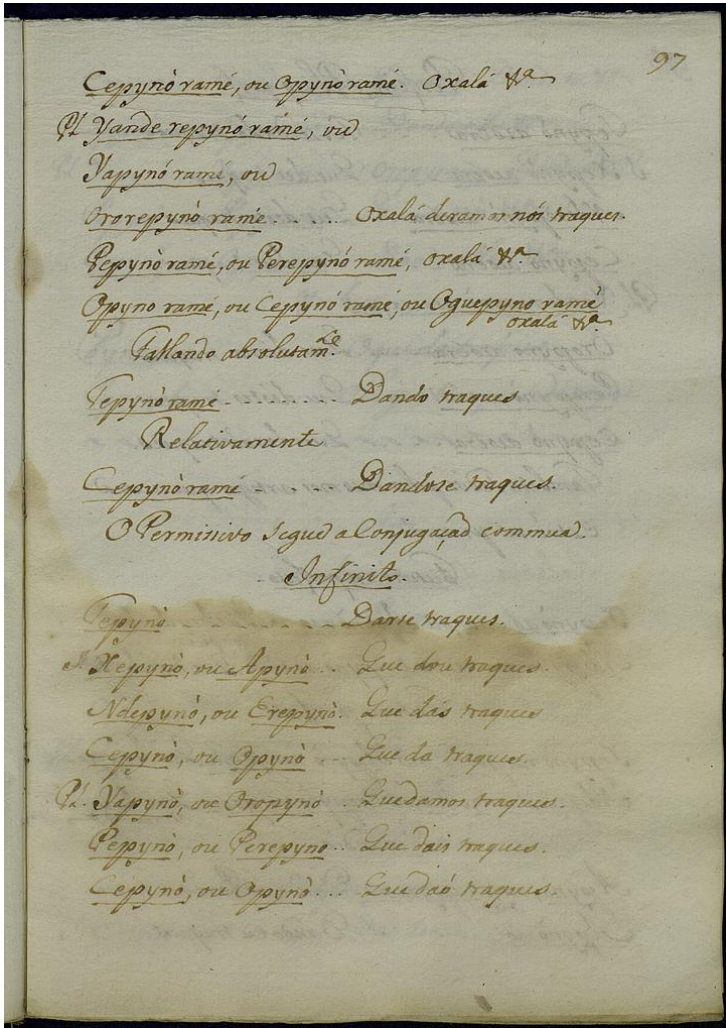 97
Cepynò ramé, ou Opynò ramé. Oxalá &a.
Pl. Yande repynó ramé, ou
Yapynó ramé, ou
Ororepynò ramé . . . . . Oxalá deramos nós traques.
Pepynò ramé, ou Perepynó ramé, oxalá &a.
Opyno ramé, ou Cepynó ramé, ou Oguepyno ramé
oxalá &a.
Fallando absolutamte.
Tepynò ramé . . . . . . . Dando traques
Relativamente
Cepynò ramé - . - . . . Dandose traques.
O Permissivo segue a Conjugaçaõ commua.
Infinito.
Tepynò . . . . . . . . Darse traques.
S. Xepynò, ou Apynò . . Que dou traques.
Ndepynò, ou Erepynò. Que dás traques
Cepynò, ou Opynò . . . Que da traques.
Pl. Yapynò, ou Oropynò . . Que damos traques.
Pepynò, ou Perepyno . . Que dais traques.
Cepynò, ou Opynò . . . Que daõ traques.